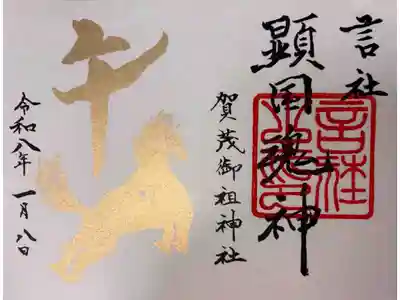 言社
顕国魂神
賀茂御祖神社
午
令和八年 一月八日
言社